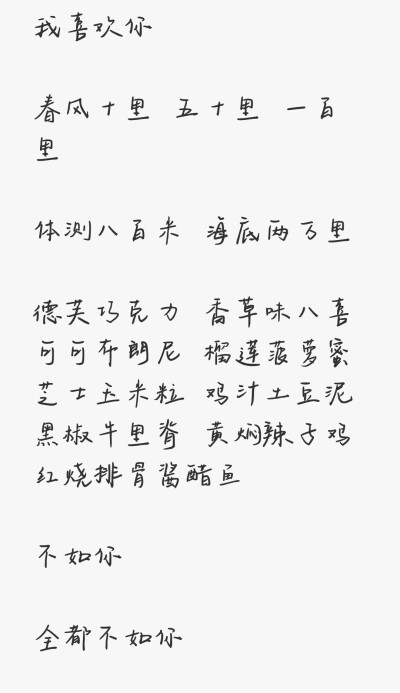 我喜欢你
春风十里 五十里 一百
里
体测八百米 海底两万里
德芙巧克力 香草味八喜
可可布朗尼 榴莲菠萝蜜
芝士玉米粒 鸡汁土豆泥
黑椒牛里脊 黄焖辣子鸡
红烧排骨酱醋鱼
不如你
全都不如你